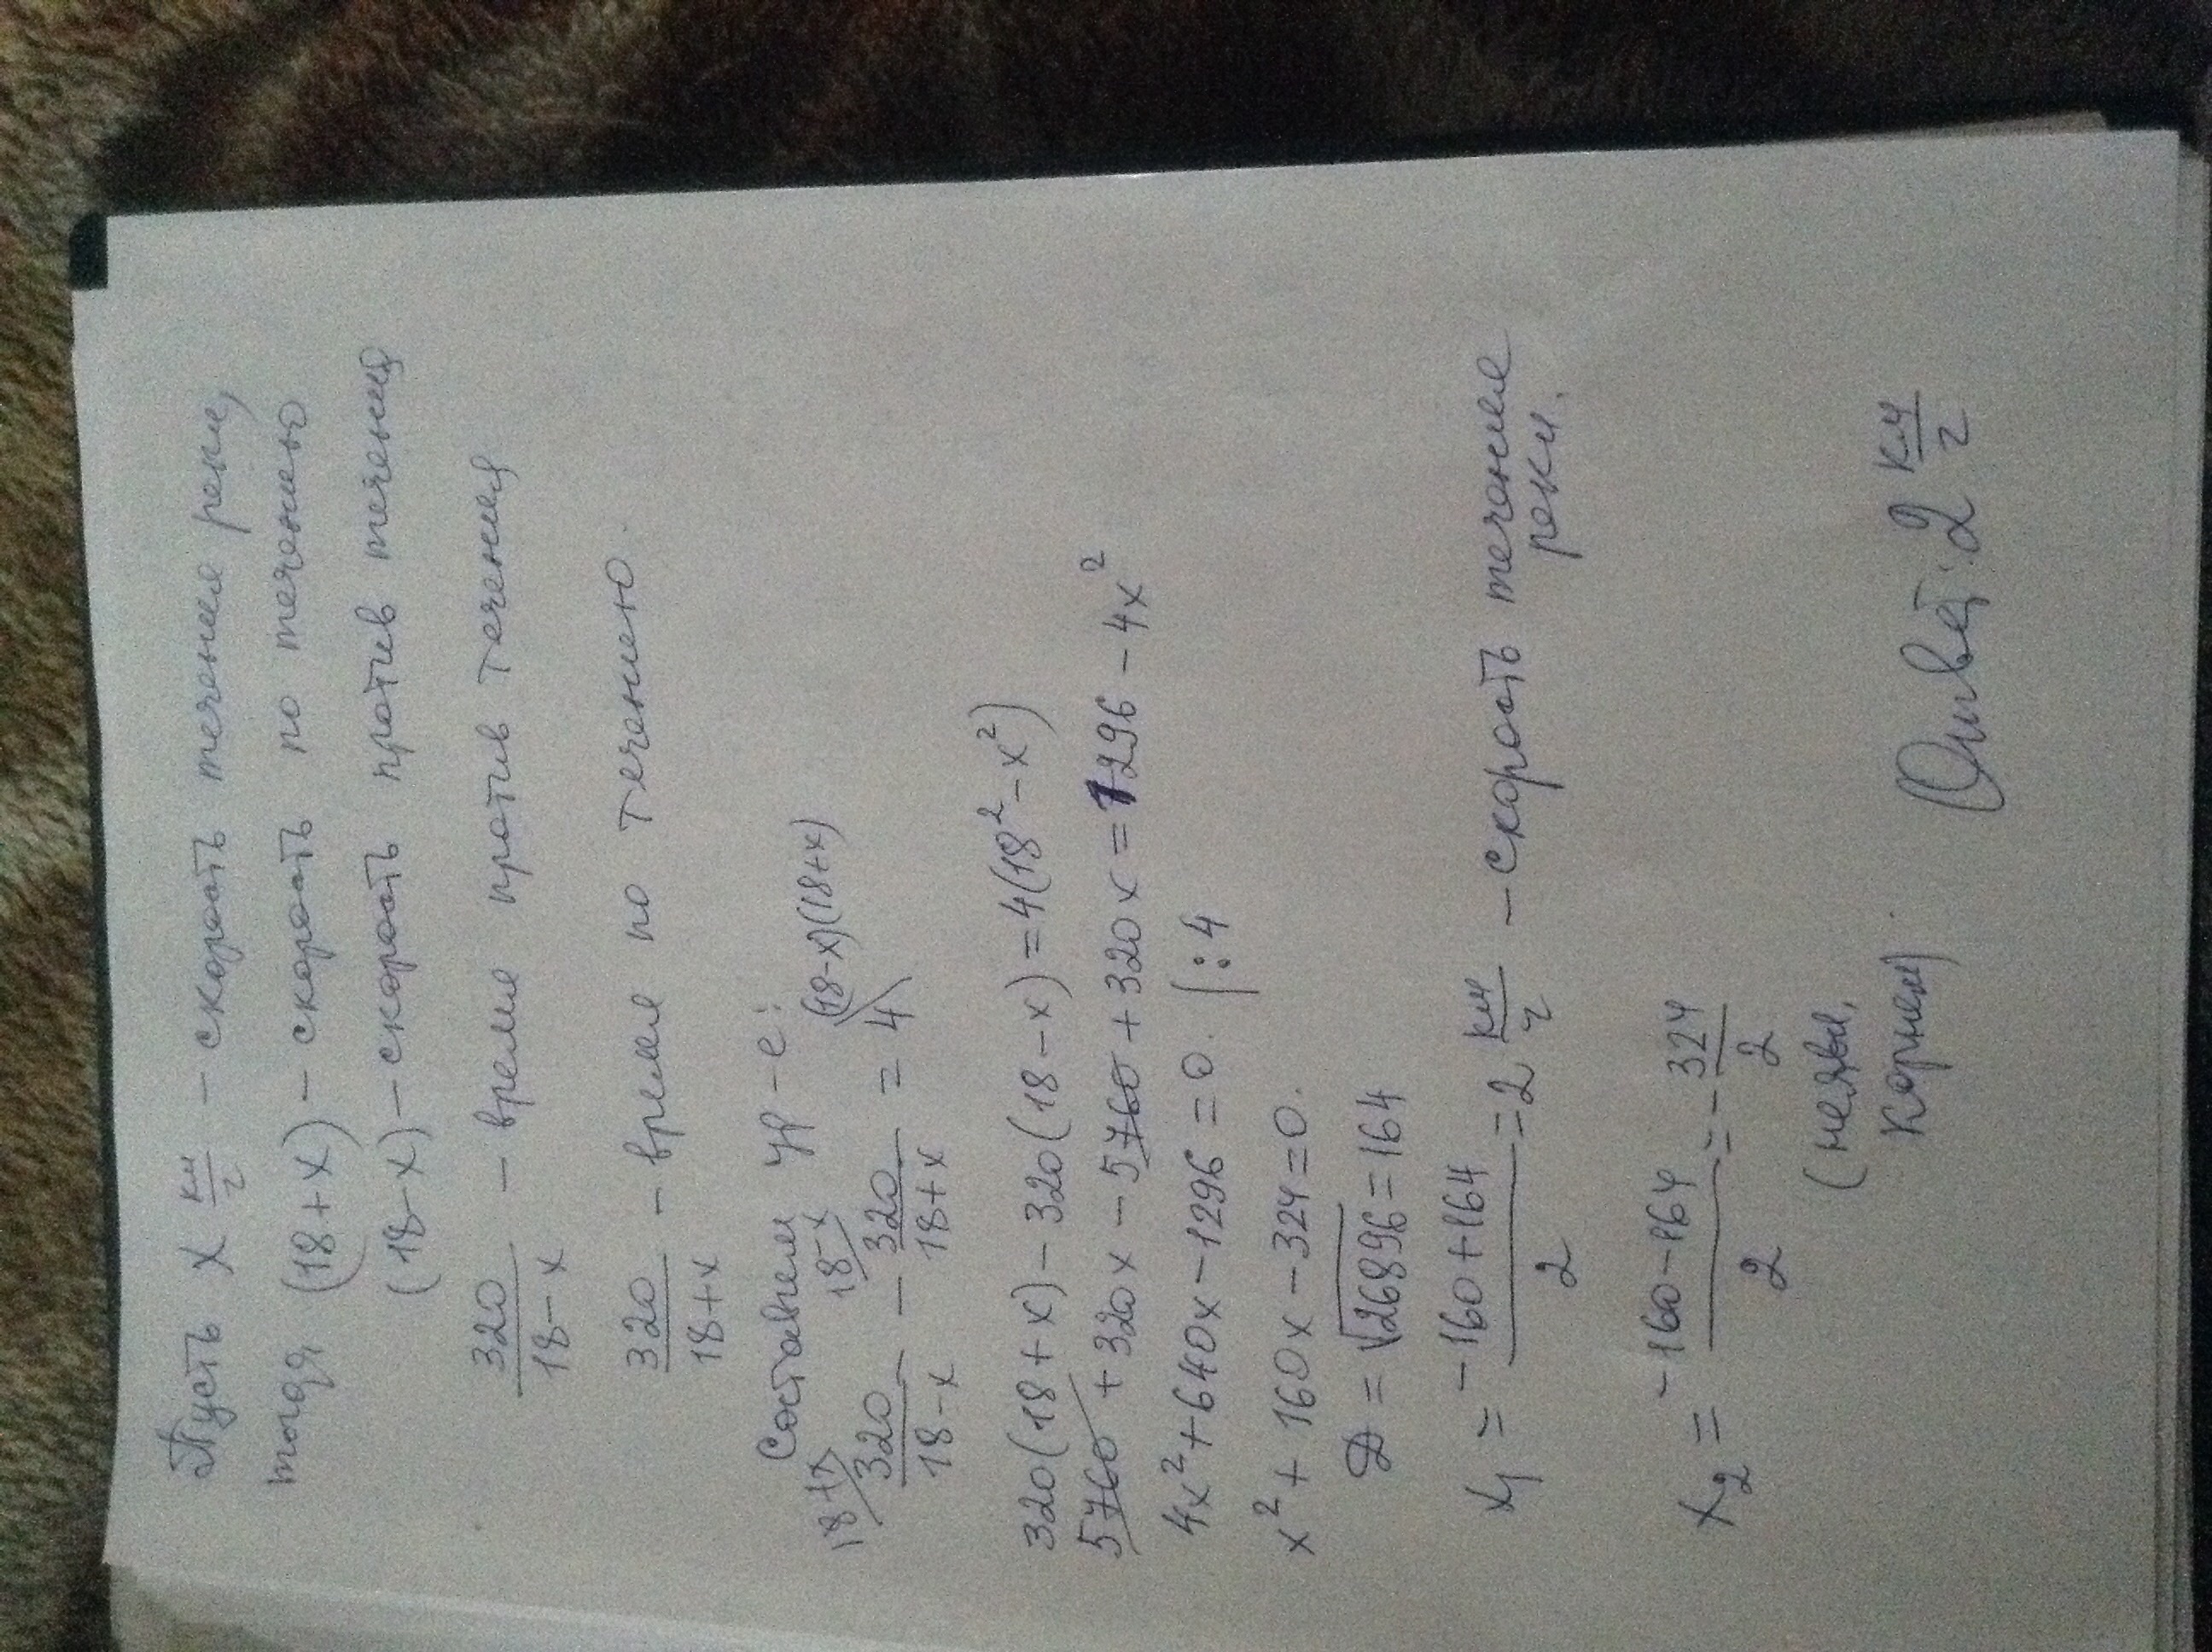 Пусть x км/ч – скорость течения реки,
тогда (18+x) – скорость по течению
(18-x) – скорость против течения
320/(18-x) – время против течения
320/(18+x) – время по течению.
Составим ур-е:
18+x/ 320/(18-x) - 18-x/ 320/(18+x) = 4 \(18-x)(18+x)
320(18+x)-320(18-x)=4(18²-x²)
5760+320x-5760+320x=1296-4x²
4x²+640x-1296=0. |:4
x²+160x-324=0.
D=√26896=164
x₁=(-160+164)/2=2 км/ч – скорость течения реки.
x₂=(-160-164)/2=-324/2
(не явл. корнем).
Ответ: 2 км/ч